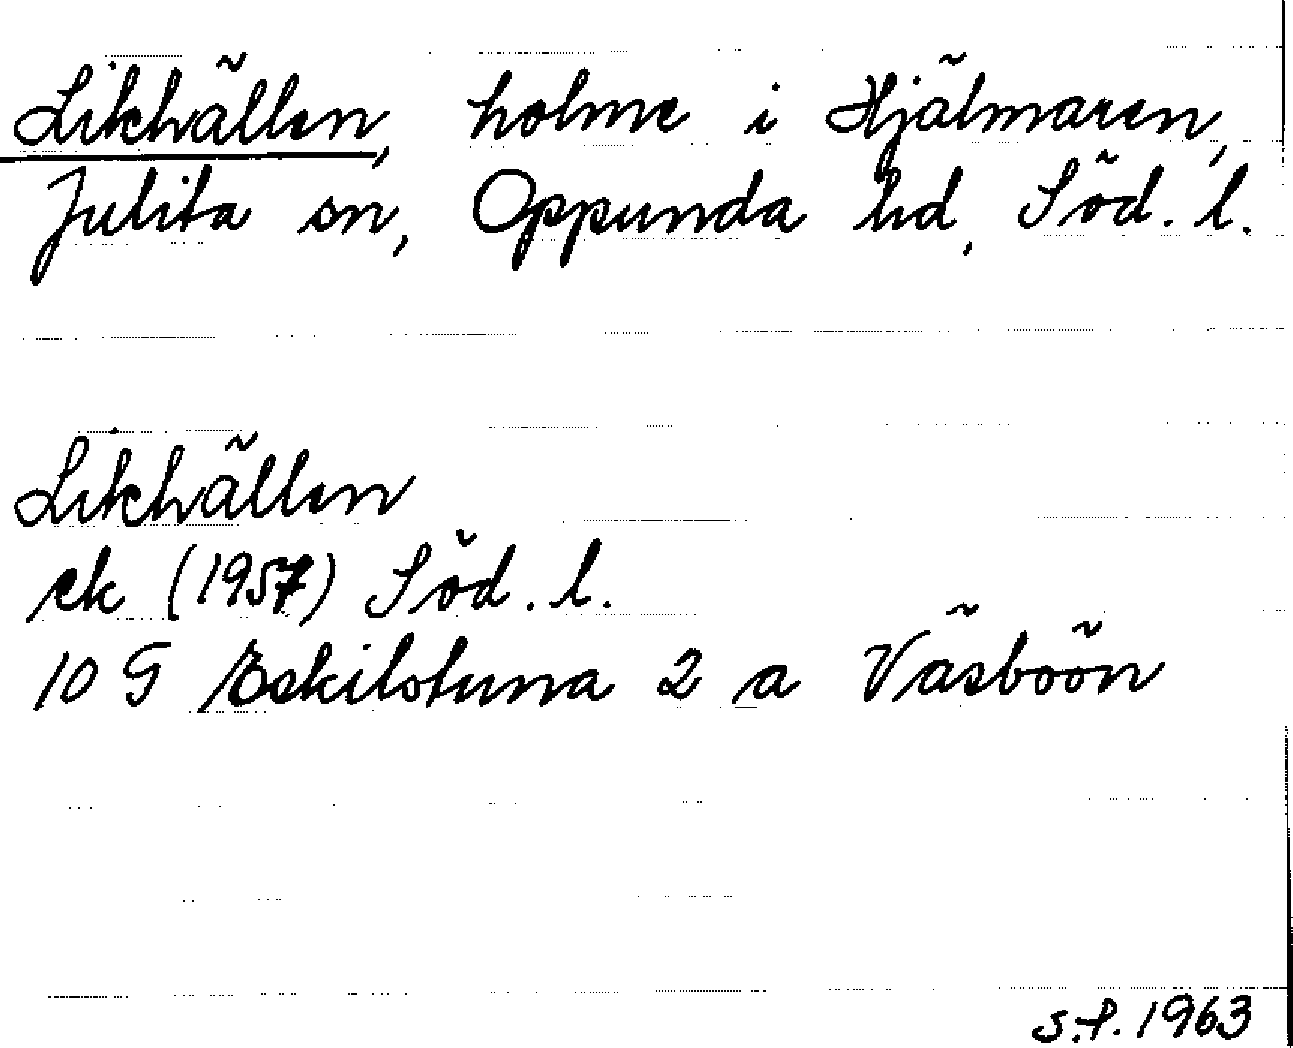 Likhällen, holme i Hjälmaren,
Julita sn, Oppunda hd, Söd. l.
Likhällen
ek (1957) Söd. l.
10 G Eskilstuna 2 a Väsböön
S.f. 1963